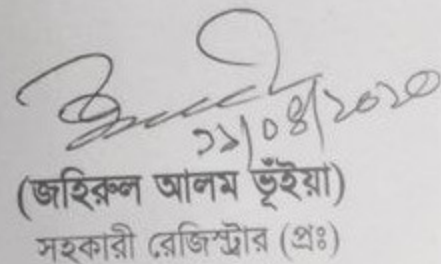 ২২/০৪/২০২০
(জহিরুল আলম ভূঁইয়া)
সহকারী রেজিস্ট্রার (প্রঃ)